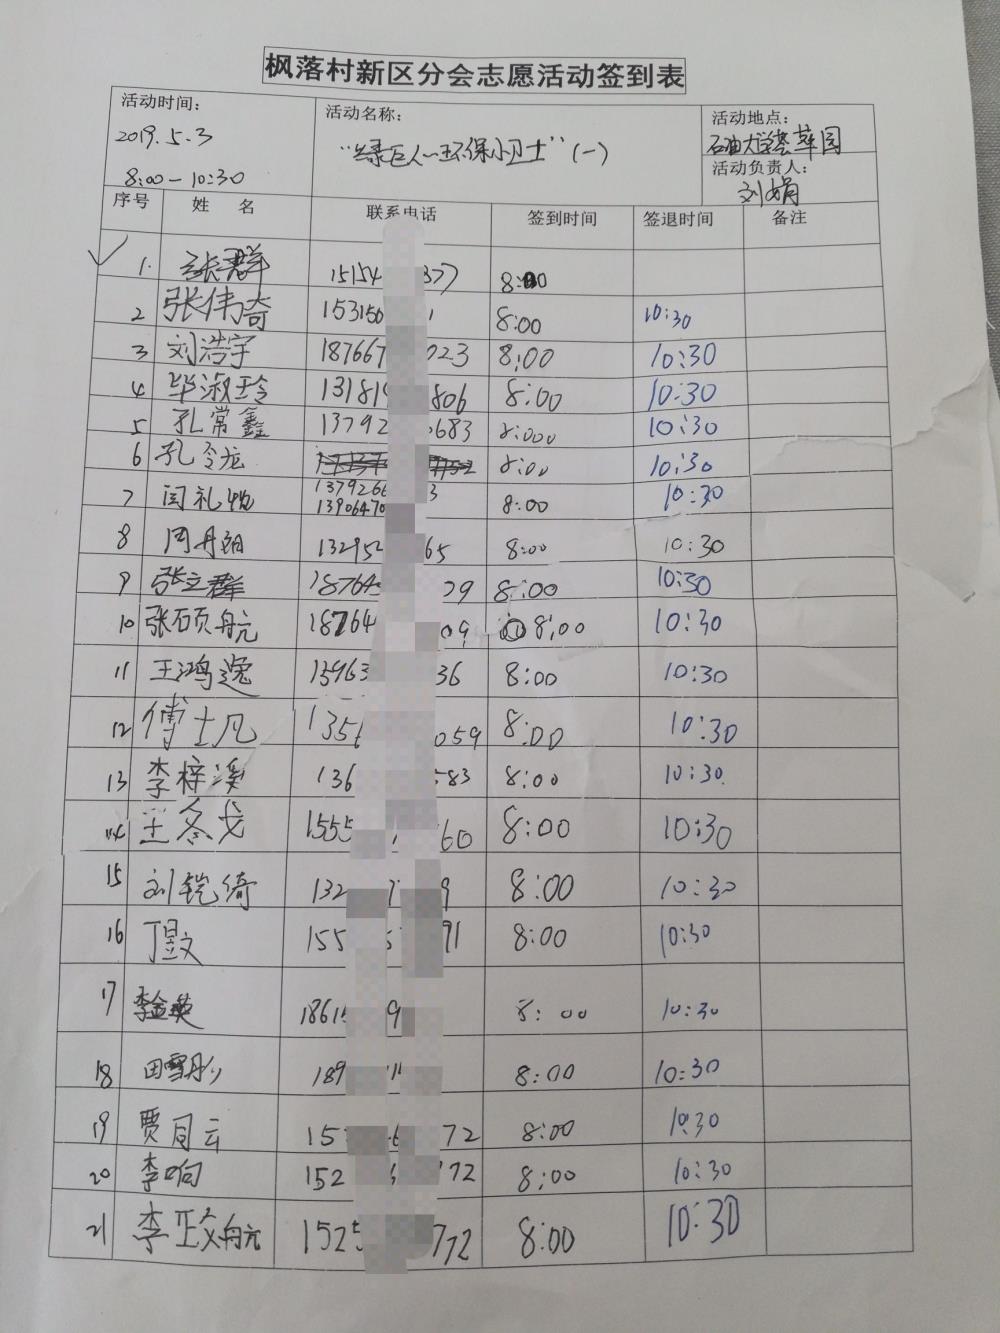 枫落村新区分会志愿活动签到表
活动时间:
2019.5.3
8:00-10:30
活动名称:
"绿巨人—环保小卫士"(一)
活动地点:
石油大学荟萃园
活动负责人:
刘娟
序号 姓名 联系电话 签到时间 签退时间 备注
1. 张群 15154 377 8:00
2 张伟奇 153150 1 8:00 10:30
3 刘浩宇 187667 023 8:00 10:30
4 毕淑玲 13181 806 8:00 10:30
5 孔常鑫 13792 683 8:000 10:30
6 孔令龙 8:00 10:30
7 闫礼 1379266 3 13906470 8:00 10:30
8 周丹阳 132952 65 8:00 10:30
9 张立群 18764 79 8:00 10:30
10 张硕航 18764 09 8:00 10:30
11 王鸿逸 15963 36 8:00 10:30
12 傅士凡 1356 059 8:00 10:30
13 李梓溪 136 583 8:00 10:30
14 王冬戈 1555 60 8:00 10:30
15 刘铠绮 132 7 9 8:00 10:30
16 丁昱文 155 5 91 8:00 10:30
17 李金英 1861 9 8:00 10:30
18 田雪彤 189 8:00 10:30
19 贾同云 15 6 72 8:00 10:30
20 李响 152 72 8:00 10:30
21 李政航 1525 772 8:00 10:30